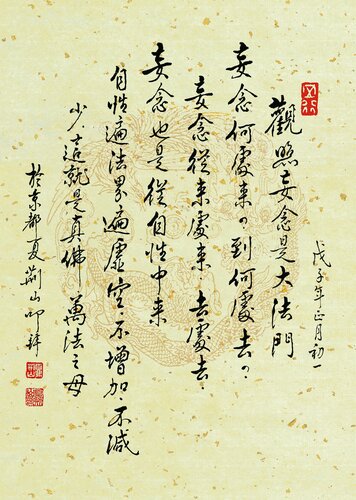 戊子年正月初一
觀照妄念是大法門
妄念何處来?到何處去?
妄念從来處来、去處去、
妄念也是從自性中来
自性遍法界、遍虛空、不增加、不減
少、這就是真佛萬法之母
於京都夏荊山叩拜